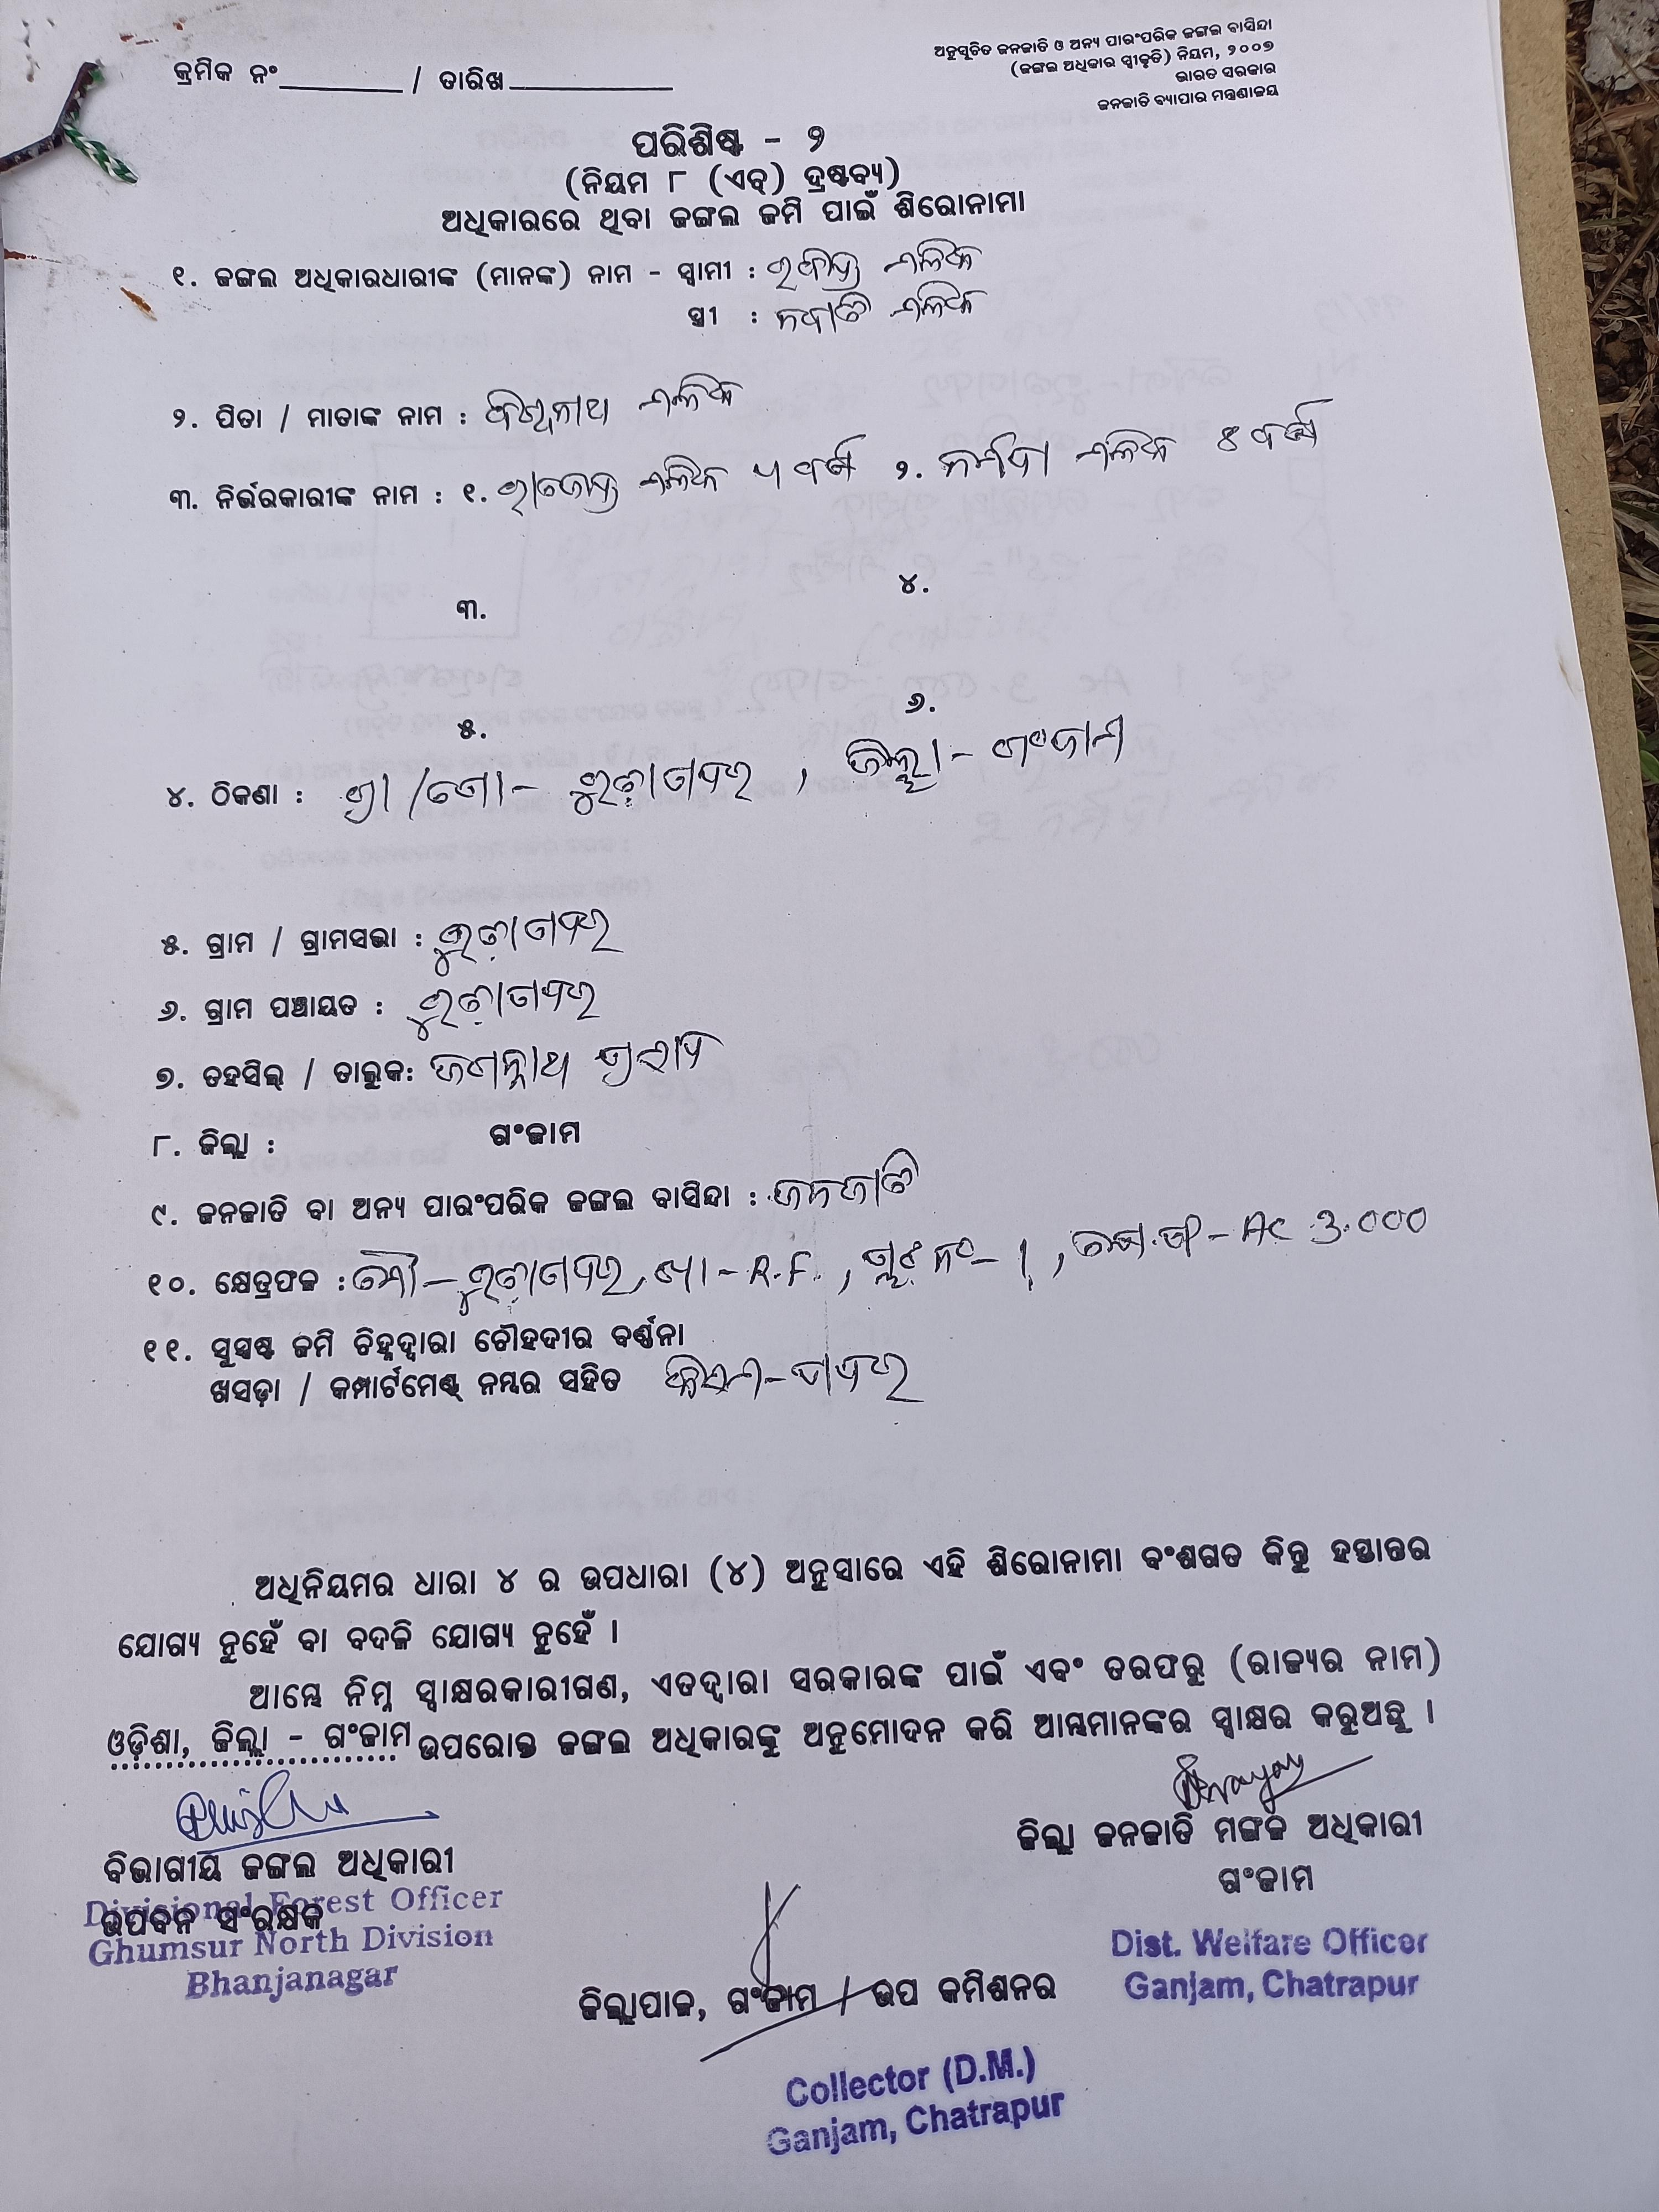 କ୍ରମିକ ନଂ ________ / ତାରିଖ ___________
ଅନୁସୂଚିତ ଜନଜାତି ଓ ଅନ୍ୟ ପାରଂପରିକ ଜଙ୍ଗଲ ବାସିନ୍ଦା
(ଜଙ୍ଗଲ ଅଧିକାର ସ୍ୱୀକୃତି) ନିୟମ, ୨୦୦୭
ଭାରତ ସରକାର
ଜନଜାତି ବ୍ୟାପାର ମନ୍ତ୍ରଣାଳୟ
ପରିଶିଷ୍ଟ - ୨
(ନିୟମ ୮ (ଏଚ୍) ଦ୍ରଷ୍ଟବ୍ୟ)
ଅଧିକାରରେ ଥିବା ଜଙ୍ଗଲ ଜମି ପାଇଁ ଶିରୋନାମା
୧. ଜଙ୍ଗଲ ଅଧିକାରଧାରୀଙ୍କ (ମାନଙ୍କ) ନାମ - ସ୍ୱାମୀ : ରବୀନ୍ଦ୍ର ମଲିକ
ସ୍ତ୍ରୀ : ମଲିକ
୨. ପିତା / ମାତାଙ୍କ ନାମ : ମଲିକ
୩. ନିର୍ଭରକାରୀଙ୍କ ନାମ : ୧. ରାଜେନ୍ଦ୍ର ମଲିକ ୫ ବର୍ଷ ୨. ନର୍ମଦା ମଲିକ ୪ ବର୍ଷ
୩.
୪.
୫.
୬.
୪. ଠିକଣା : ଗ୍ରା / ପୋ - , ଜିଲ୍ଲା - ଗଂଜାମ
୫. ଗ୍ରାମ / ଗ୍ରାମସଭା :
୬. ଗ୍ରାମ ପଞ୍ଚାୟତ :
୭. ତହସିଲ୍ / ତାଲୁକ: ଜଗନ୍ନାଥ ପ୍ରସାଦ
୮. ଜିଲ୍ଲା : ଗଂଜାମ
୯. ଜନଜାତି ବା ଅନ୍ୟ ପାରଂପରିକ ଜଙ୍ଗଲ ବାସିନ୍ଦା : ଜନଜାତି
୧୦. କ୍ଷେତ୍ରଫଳ : ମୌ - , ଖା - R.F. , ପ୍ଲଟ ନଂ - 1 , - Ac 3.000
୧୧. ସୁସ୍ପଷ୍ଟ ଜମି ଚିହ୍ନଦ୍ୱାରା ଚୌହଦୀର ବର୍ଣ୍ଣନା
ଖସଡ଼ା / କମ୍ପାର୍ଟମେଣ୍ଟ୍ ନମ୍ବର ସହିତ କିସମ -
ଅଧିନିୟମର ଧାରା ୪ ର ଉପଧାରା (୪) ଅନୁସାରେ ଏହି ଶିରୋନାମା ବଂଶଗତ କିନ୍ତୁ ହସ୍ତାନ୍ତର
ଯୋଗ୍ୟ ନୁହେଁ ବା ବଦଳି ଯୋଗ୍ୟ ନୁହେଁ ।
ଆମ୍ଭେ ନିମ୍ନ ସ୍ୱାକ୍ଷରକାରୀଗଣ, ଏତଦ୍ୱାରା ସରକାରଙ୍କ ପାଇଁ ଏବଂ ତରଫରୁ (ରାଜ୍ୟର ନାମ)
ଓଡ଼ିଶା, ଜିଲ୍ଲା - ଗଂଜାମ ଉପରୋକ୍ତ ଜଙ୍ଗଲ ଅଧିକାରଙ୍କୁ ଅନୁମୋଦନ କରି ଆମ୍ଭମାନଙ୍କର ସ୍ୱାକ୍ଷର କରୁଅଛୁ ।
ବିଭାଗୀୟ ଜଙ୍ଗଲ ଅଧିକାରୀ
ଉପବନ ସଂରକ୍ଷକ
Divisional Forest Officer
Ghumsur North Division
Bhanjanagar
ଜିଲ୍ଲା ଜନଜାତି ମଙ୍ଗଳ ଅଧିକାରୀ
ଗଂଜାମ
Dist. Welfare Officer
Ganjam, Chatrapur
ଜିଲ୍ଲାପାଳ, ଗଂଜାମ / ଉପ କମିଶନର
Collector (D.M.)
Ganjam, Chatrapur